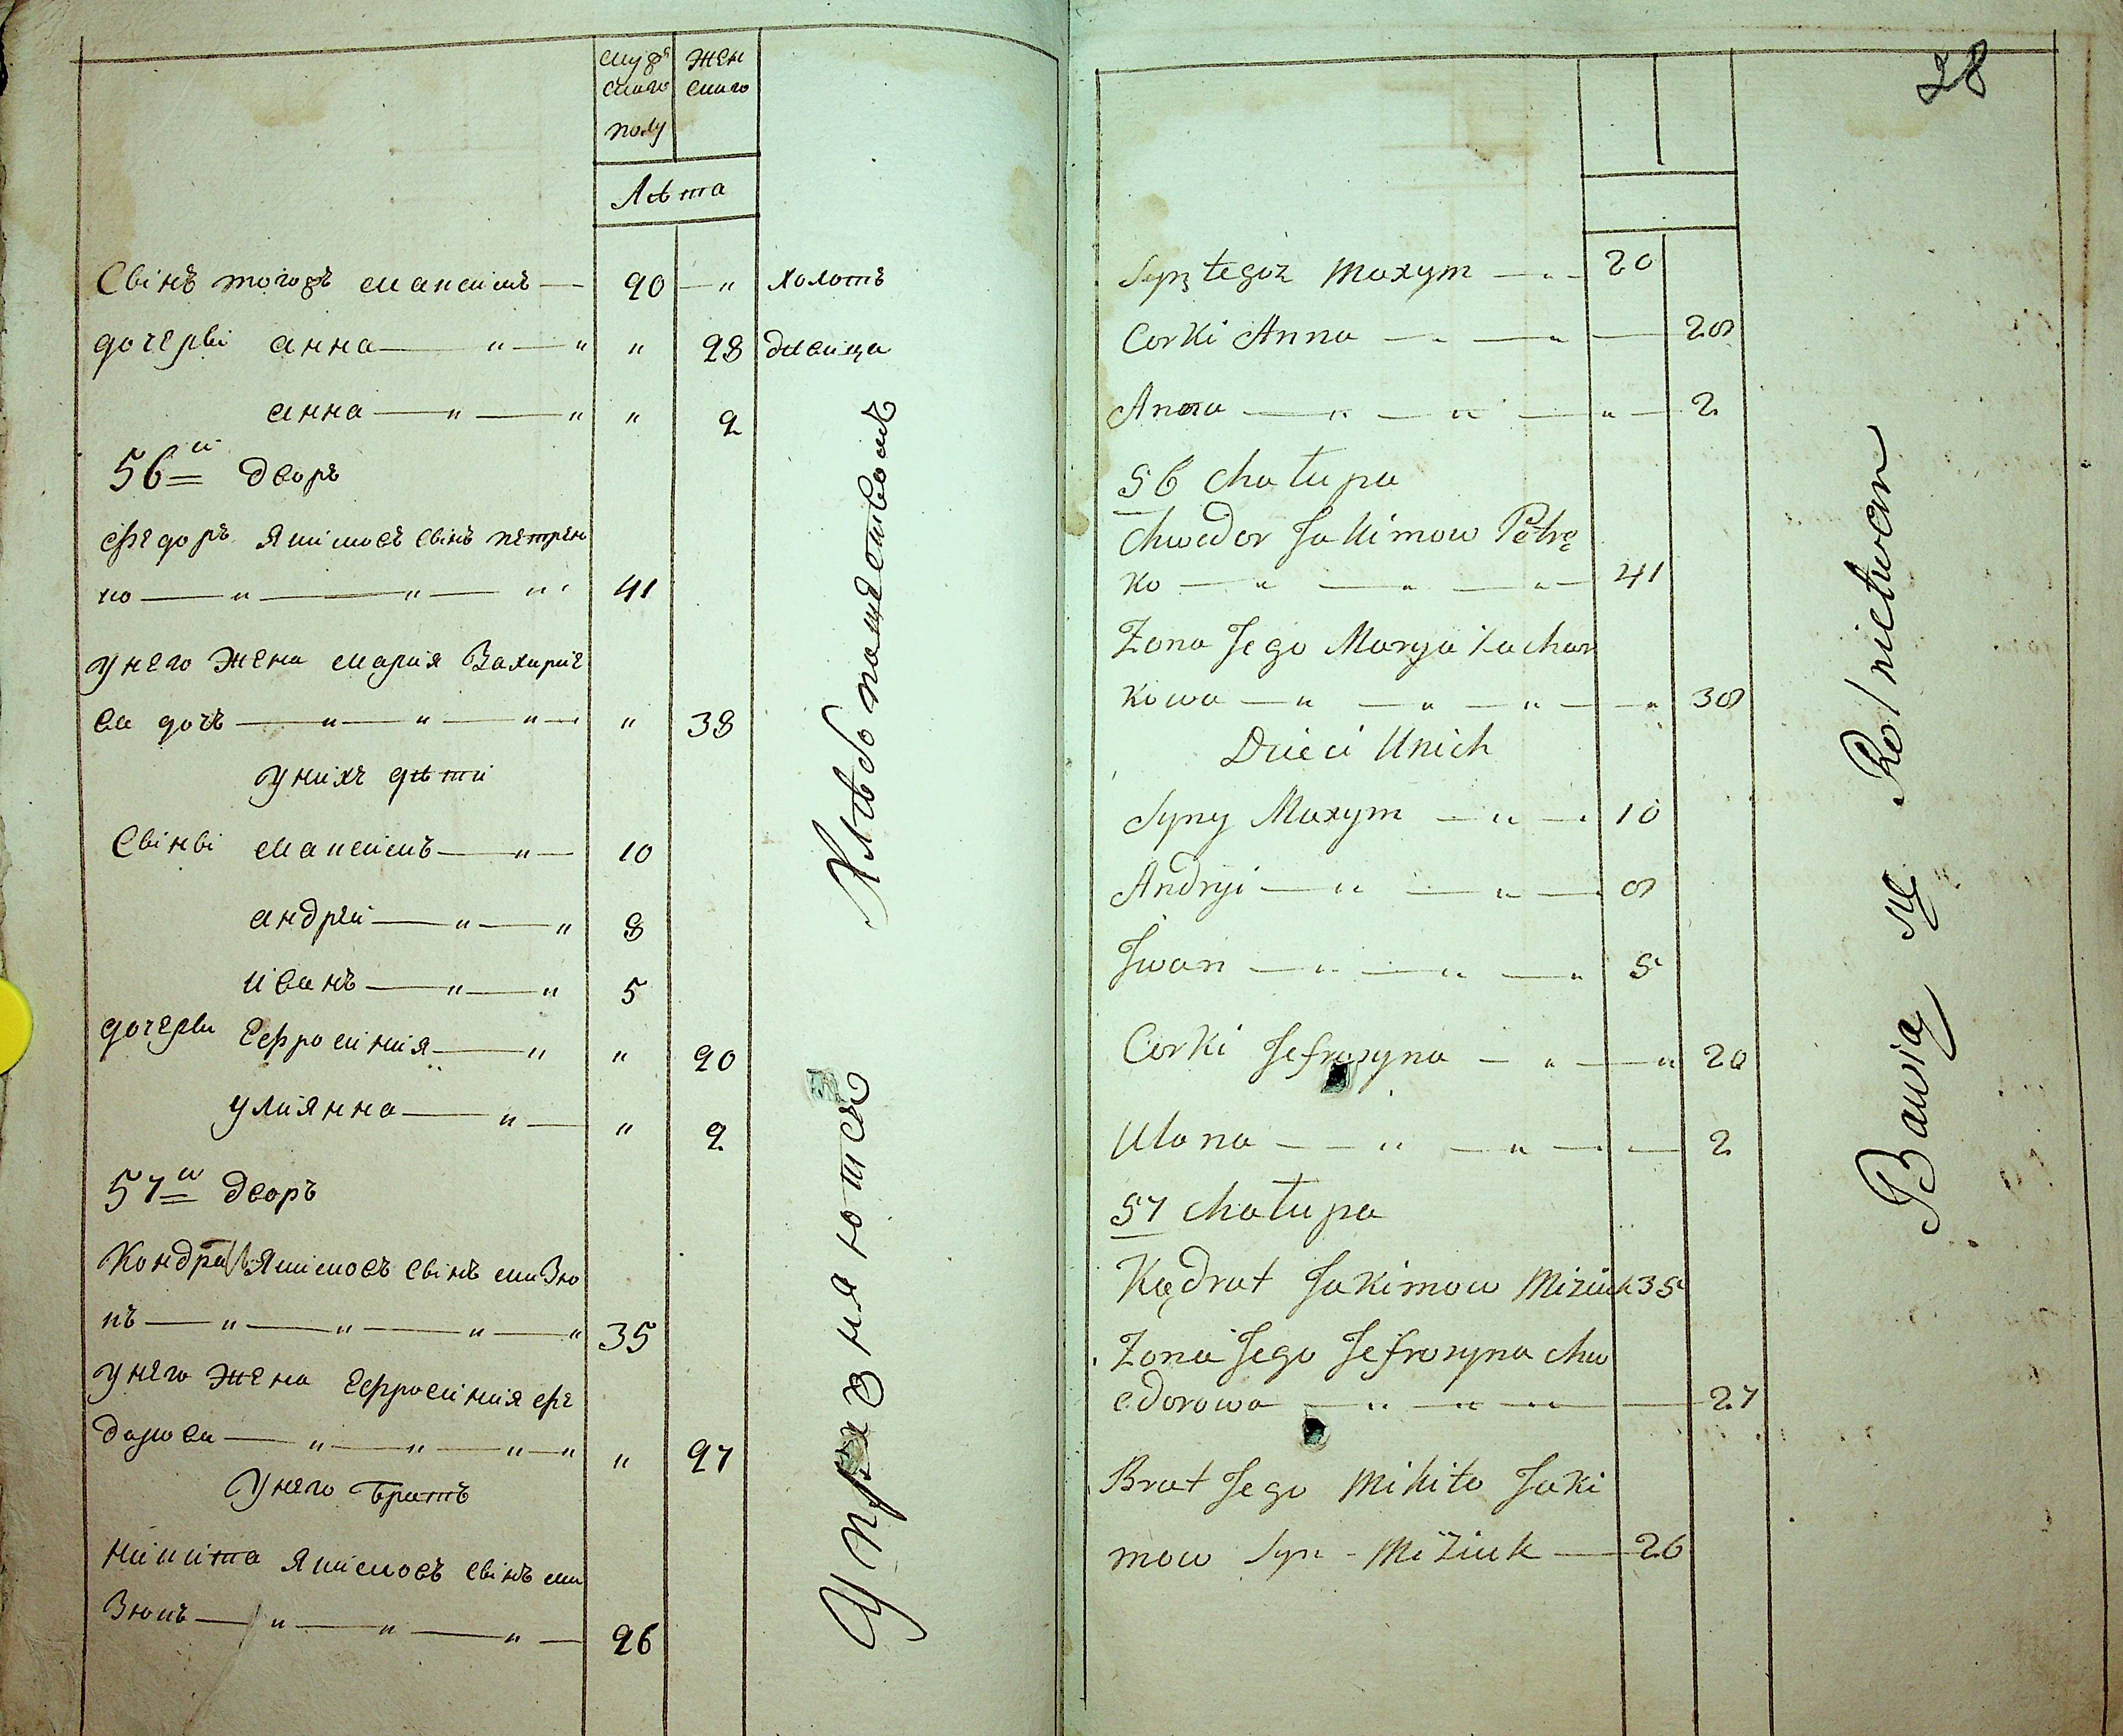 мужескаго полу
женскаго
Лѣта
Сынъ тогожъ Максимъ — 20 — " холотъ
дочеры анна — " — " " 28 девица
анна — " — " " 2
56й дворъ
Федоръ Якимовъ сынъ петрен
ко — " — " — " 41
у него жена Мария Захарие
ва дочь — " — " — " — " 38
у нихъ дѣти
Сыны Максимъ — " — 10
андрей — " — " 8
иванъ — " — " 5
дочеры Ефросиния — " " 20
улиянна — " — " 2
57й дворъ
Кондратъ Якимовъ сынъ мизю
къ — " — " — " — " 35
у него жена Ефросиния фе
дорова — " — " — " — " " 27
у него братъ
никита Якимовъ сынъ ми
зюкъ — " — " — " — 26
Упражняются Хлѣбопашествомъ
28
Syn tegoż Maxym — " — 20
Corki Anna — " — " — 28
Anna — " — " — " — 2
56 chałupa
Chwedor Jakimow Petrę
ko — " — " — " — 41
Zona Jego Marya Zachar
kowa — " — " — " — " 38
Dzieci Unich
Syny Maxym — " — 10
Andryi — " — " — 8
Iwan — " — " — " 5
Corki Jefrozyna — " — " 20
Ulana — " — " — — 2
57 chałupa
Kędrat Jakimow Miziuk 35
Zona Jego Jefrozyna chw
edorowa — " — " — " — 27
Brat Jego Mikita Jaki
mow Syn - Miziuk — 26
Bawią się Rolnictwem